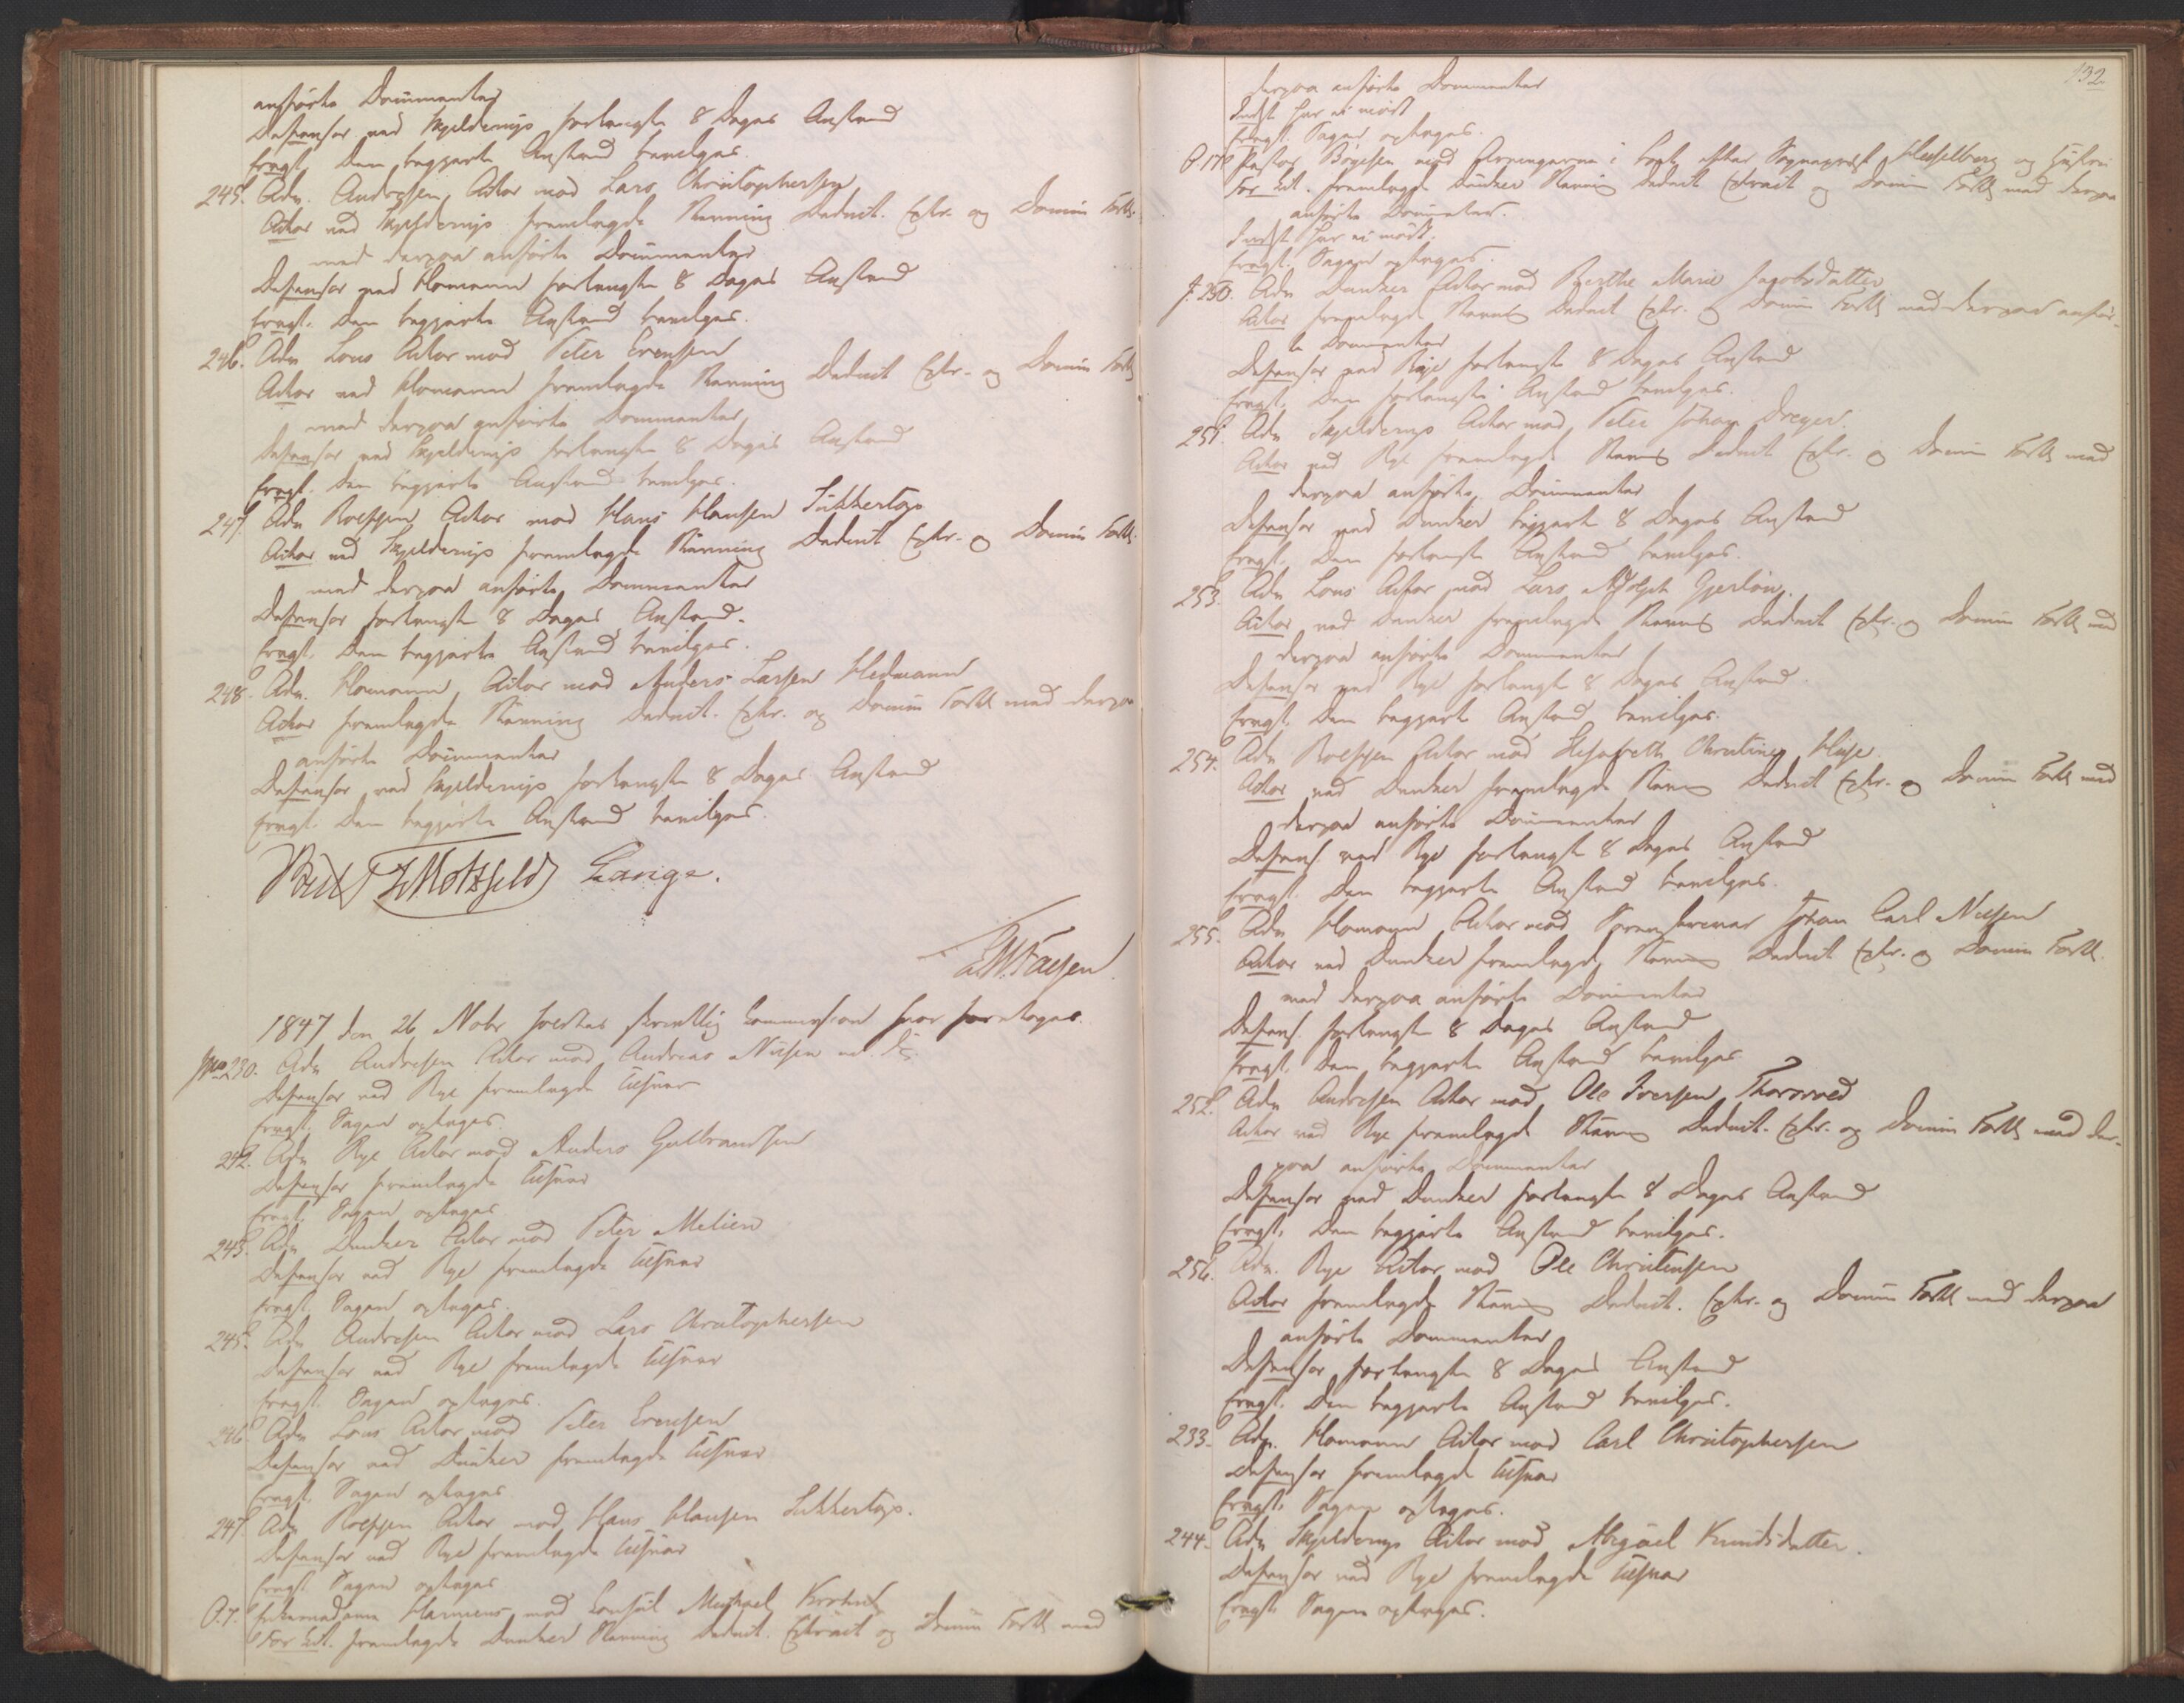 anførte Documenter
Defensor ved Skjelderup forlangte 8 Dages Anstand
Eragt. Den begjærte Anstand bevilges.
245. Adv. Andresen Actor mod Lars Christophersen
Actor ved Skjelderup fremlagde Stevning Deduct. Extr. og Docum Fortl.
med derpaa anførte Documenter
Defensor ved Homann forlangte 8 Dages Anstand
Eragt. Den begjærte Anstand bevilges.
246. Adv Lous Actor mod Peter Evensen
Actor ved Homann fremlagde Stevning Deduct Extr. og Docum Fortl
med derpaa anførte Documenter
Defensor ved Skjelderup forlangte 8 Dages Anstand
Eragt. Den begjærte Anstand bevilges.
247. Adv Rolfsen Actor mod Hans Hansen Sukkertop
Actor ved Skjelderup fremlagde Stevning Deduct Extr. og Docum Fortl.
med derpaa anførte Documenter
Defensor forlangte 8 Dages Anstand.
Eragt. Den begjærte Anstand bevilges.
248. Adv. Homann Actor mod Anders Larsen Hedmann
Actor fremlagde Stevning Deduct. Extr. og Docum Fortl med derpaa
anførte Documenter
Defensor ved Skjelderup forlangte 8 Dages Anstand
Eragt. Den begjærte Anstand bevilges.
Motzfeldt Lange.
1847 den 26 Nobr holdtes skriftlig Session hvor foretoges.
No 230. Adv Andresen Actor mod Andreas Nilsen
Defensor ved Rye fremlagde Tilsvar
Eragt. Sagen optages.
242. Adv Rye Actor mod Anders Gulbrandsen
Defensor fremlagde Tilsvar
Eragt. Sagen optages
243. Adv Dunker Actor mod Peter Melien
Defensor ved Rye fremlagde Tilsvar
Eragt. Sagen optages.
245. Adv Andresen Actor mod Lars Christophersen
Defensor ved Rye fremlagde Tilsvar
Eragt. Sagen optages.
246. Adv Lous Actor mod Peter Evensen
Defensor ved Dunker fremlagde Tilsvar
Eragt. Sagen optages
247. Adv Rolfsen Actor mod Hans Hansen Sukkertop.
Defensor ved Rye fremlagde Tilsvar
Eragt Sagen optages
O. 7. mod Consul Michael Krohn
For Cit. fremlagde Dunker Stevning Deduct. Extract og Docum Fortl med
132
derpaa anførte Documenter
Indst har ei mødt
Eragt. Sagen optages.
Pastor Bøyesen mod Arvingerne i Boet efter Sogneprest Hesselberg og Hustru
For Cit. fremlagde Dunker Stevning Deduct Extract og Docum Fortl med derpaa
anførte Documenter.
Indst har ei mødt.
Eragt. Sagen optages.
250. Adv Dunker Actor mod Berthe Marie Jacobsdatter
Actor fremlagde Stevning Deduct Extr. og Docum Fortl med derpaa anfør-
te Documenter
Defensor ved Rye forlangte 8 Dages Anstand
Eragt. Den forlangte Anstand bevilges.
251. Adv Skjelderup Actor mod Peter Johan Dreyer.
Actor ved Rye fremlagde Stevning Deduct Extr. og Docum Fortl med
derpaa anførte Documenter
Defensor ved Dunker begjærte 8 Dages Anstand
Eragt. Den forlangte Anstand bevilges.
253. Adv Lous Actor mod Lars Adolph Gjerløv.
Actor ved Dunker fremlagde Stevning Deduct Extr. og Docum Fortl med
derpaa anførte Documenter
Defensor ved Rye forlangte 8 Dages Anstand.
Eragt. Den begjærte Anstand bevilges.
254. Adv Rolfsen Actor mod Elisabeth Christine
Actor ved Dunker fremlagde Stevning Deduct Extr. og Docum Fortl med
derpaa anførte Documenter
Defens. ved Rye forlangte 8 Dages Anstand
Eragt. Den begjærte Anstand bevilges.
255. Adv Homann Actor mod Johan Carl Nilsen
Actor ved Dunker fremlagde Stevning Deduct Extr. og Docum Fortl.
med derpaa anførte Documenter
Defens. forlangte 8 Dages Anstand
Eragt. Den begjærte Anstand bevilges
252. Adv Andresen Actor mod Ole Iversen Thorsrud
Actor ved Rye fremlagde Stevning Deduct. Extr. og Docum Fortl med der-
paa anførte Documenter
Defensor ved Dunker forlangte 8 Dages Anstand
Eragt. Den begjærte Anstand bevilges.
256. Adv. Rye Actor mod Ole Christensen
Actor fremlagde Stevning Deduct. Extr. og Docum Fortl med derpaa
anførte Documenter
Defensor forlangte 8 Dages Anstand
Eragt. Den begjærte Anstand bevilges.
233. Adv. Homann Actor mod Carl Christophersen
Defensor fremlagde Tilsvar
Eragt. Sagen optages.
244. Adv Skjelderup Actor mod Abigael Knudsdatter.
Defensor ved Rye fremlagde Tilsvar
Eragt. Sagen optages.